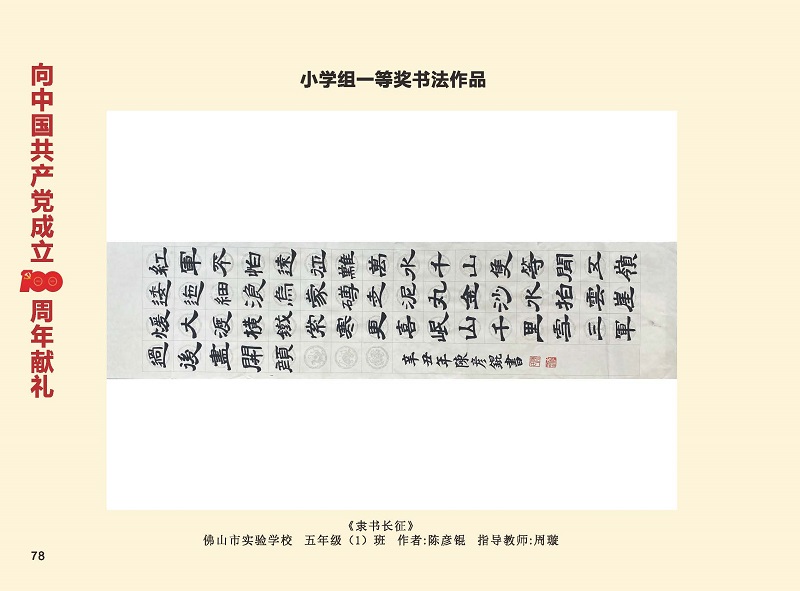 小学组一等奖书法作品
向中国共产党成立100周年献礼
紅軍不怕遠征難萬水千山隻等閒五嶺
逶迤細浪烏蒙礴走泥丸金沙水拍雲崖
暖大渡橫鐵索寒更喜岷山千里雪三軍
過後盡開顔
辛丑年陳彦錕書
《隶书长征》
佛山市实验学校 五年级（1）班 作者:陈彦锟 指导教师:周璇
78